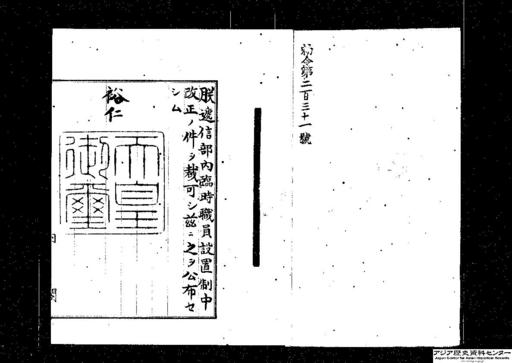 勅令第二百三十一號
朕遞信部內臨時職員設置制中
改正ノ件ヲ裁可シ茲ニ之ヲ公布セ
シム
裕仁
天皇
御璽
内 閣
アジア歴史資料センター
Japan Center for Asian Historical Records